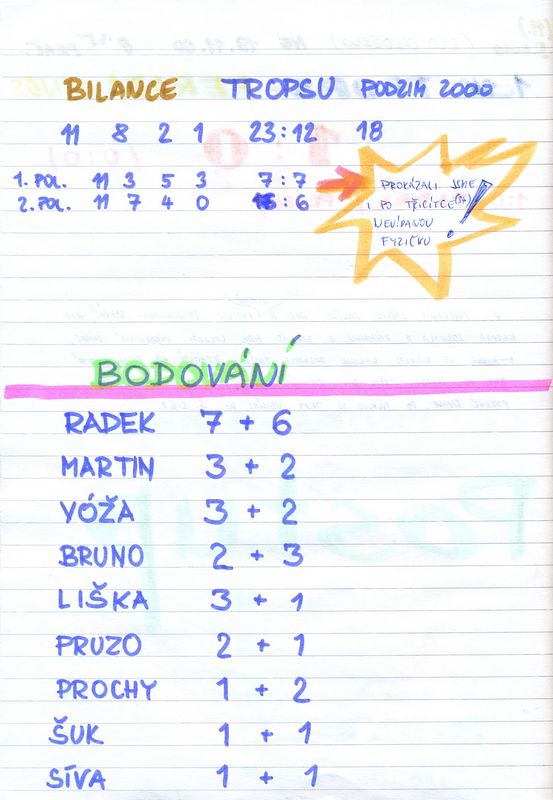 BILANCE TROPSU PODZIM 2000
11 8 2 1 23:12 18
1. POL. 11 3 5 3 7:7
2. POL. 11 7 4 0 16:6
PROKÁZALI JSME
I PO TŘICÍTCE
NEVÍDANOU
FYZIČKU!
BODOVÁNÍ
RADEK 7 + 6
MARTIN 3 + 2
YÓŽA 3 + 2
BRUNO 2 + 3
LIŠKA 3 + 1
PRUZO 2 + 1
PROCHY 1 + 2
ŠUK 1 + 1
SÍVA 1 + 1